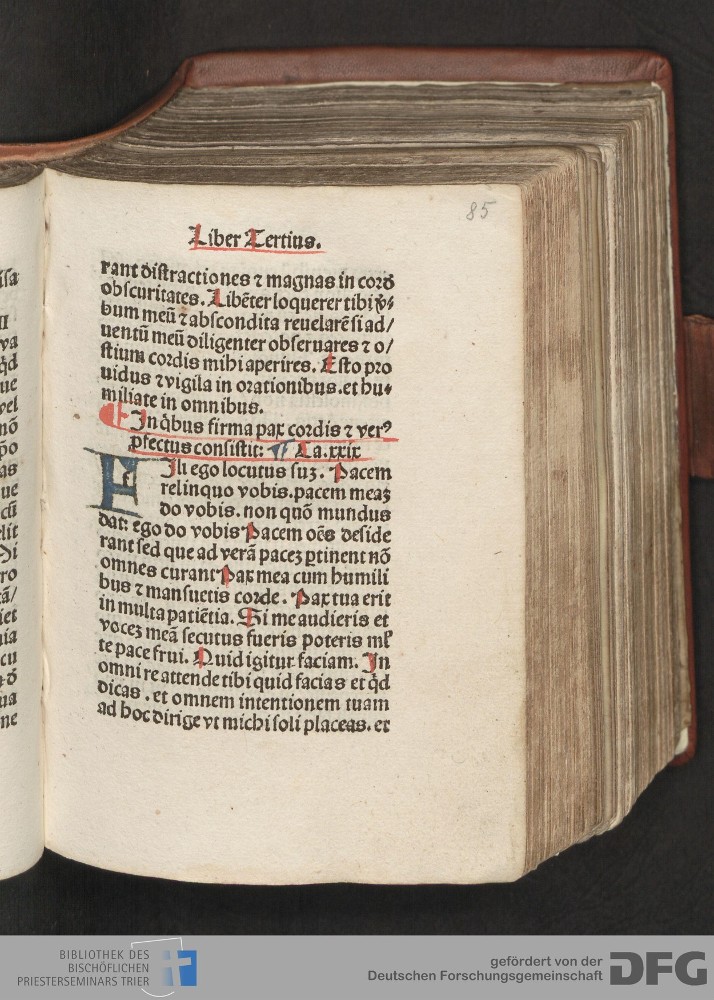 85
Liber Tertius.
rant distractiones ⁊ magnas in cord
obscuritates. Libēter loquerer tibi v̄-
bum meū ⁊ abscondita reuelarē si ad/
uentū meū diligenter obseruares ⁊ o/
stium cordis mihi aperires. Esto pro
uidus ⁊ vigila in orationibus. et hu-
miliate in omnibus.
¶ In q̇bus firma pax cordis ⁊ verꝰ
ꝓfectus consistit: ¶ Ca. xxix
Fili ego locutus suꝫ. Pacem
relinquo vobis. pacem meaꝫ
do vobis. non quō mundus
dat: ego do vobis Pacem oēs deside
rant sed que ad verā paceꝫ ꝑtinent nō
omnes curant Pax mea cum humili
bus ⁊ mansuetis corde. Pax tua erit
in multa patiētia. Si me audieris et
voceꝫ meā secutus fueris poteris ml̓
te pace frui. Quid igitur faciam. In
omni re attende tibi quid facias et q̇d
dicas. et omnem intentionem tuam
ad hoc dirige vt michi soli placeas. et
BIBLIOTHEK DES
BISCHÖFLICHEN
PRIESTERSEMINARS TRIER
gefördert von der
Deutschen Forschungsgemeinschaft
DFG